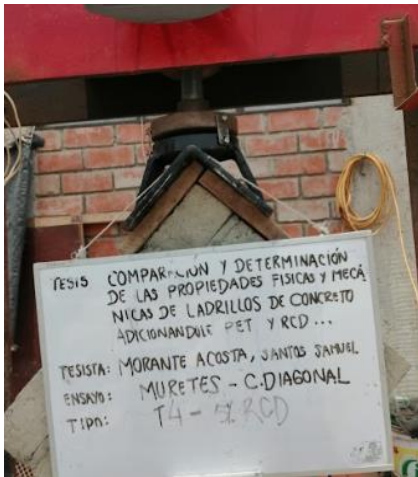 TESIS COMPARACIÓN Y DETERMINACIÓN
DE LAS PROPIEDADES FISICAS Y MECÁ
NICAS DE LADRILLOS DE CONCRETO
ADICIONANDOLE PET Y RCD...
TESISTA: MORANTE ACOSTA, SANTOS SAMUEL
ENSAYO: MURETES - C.DIAGONAL
TIPO: T4 - 5% RCD